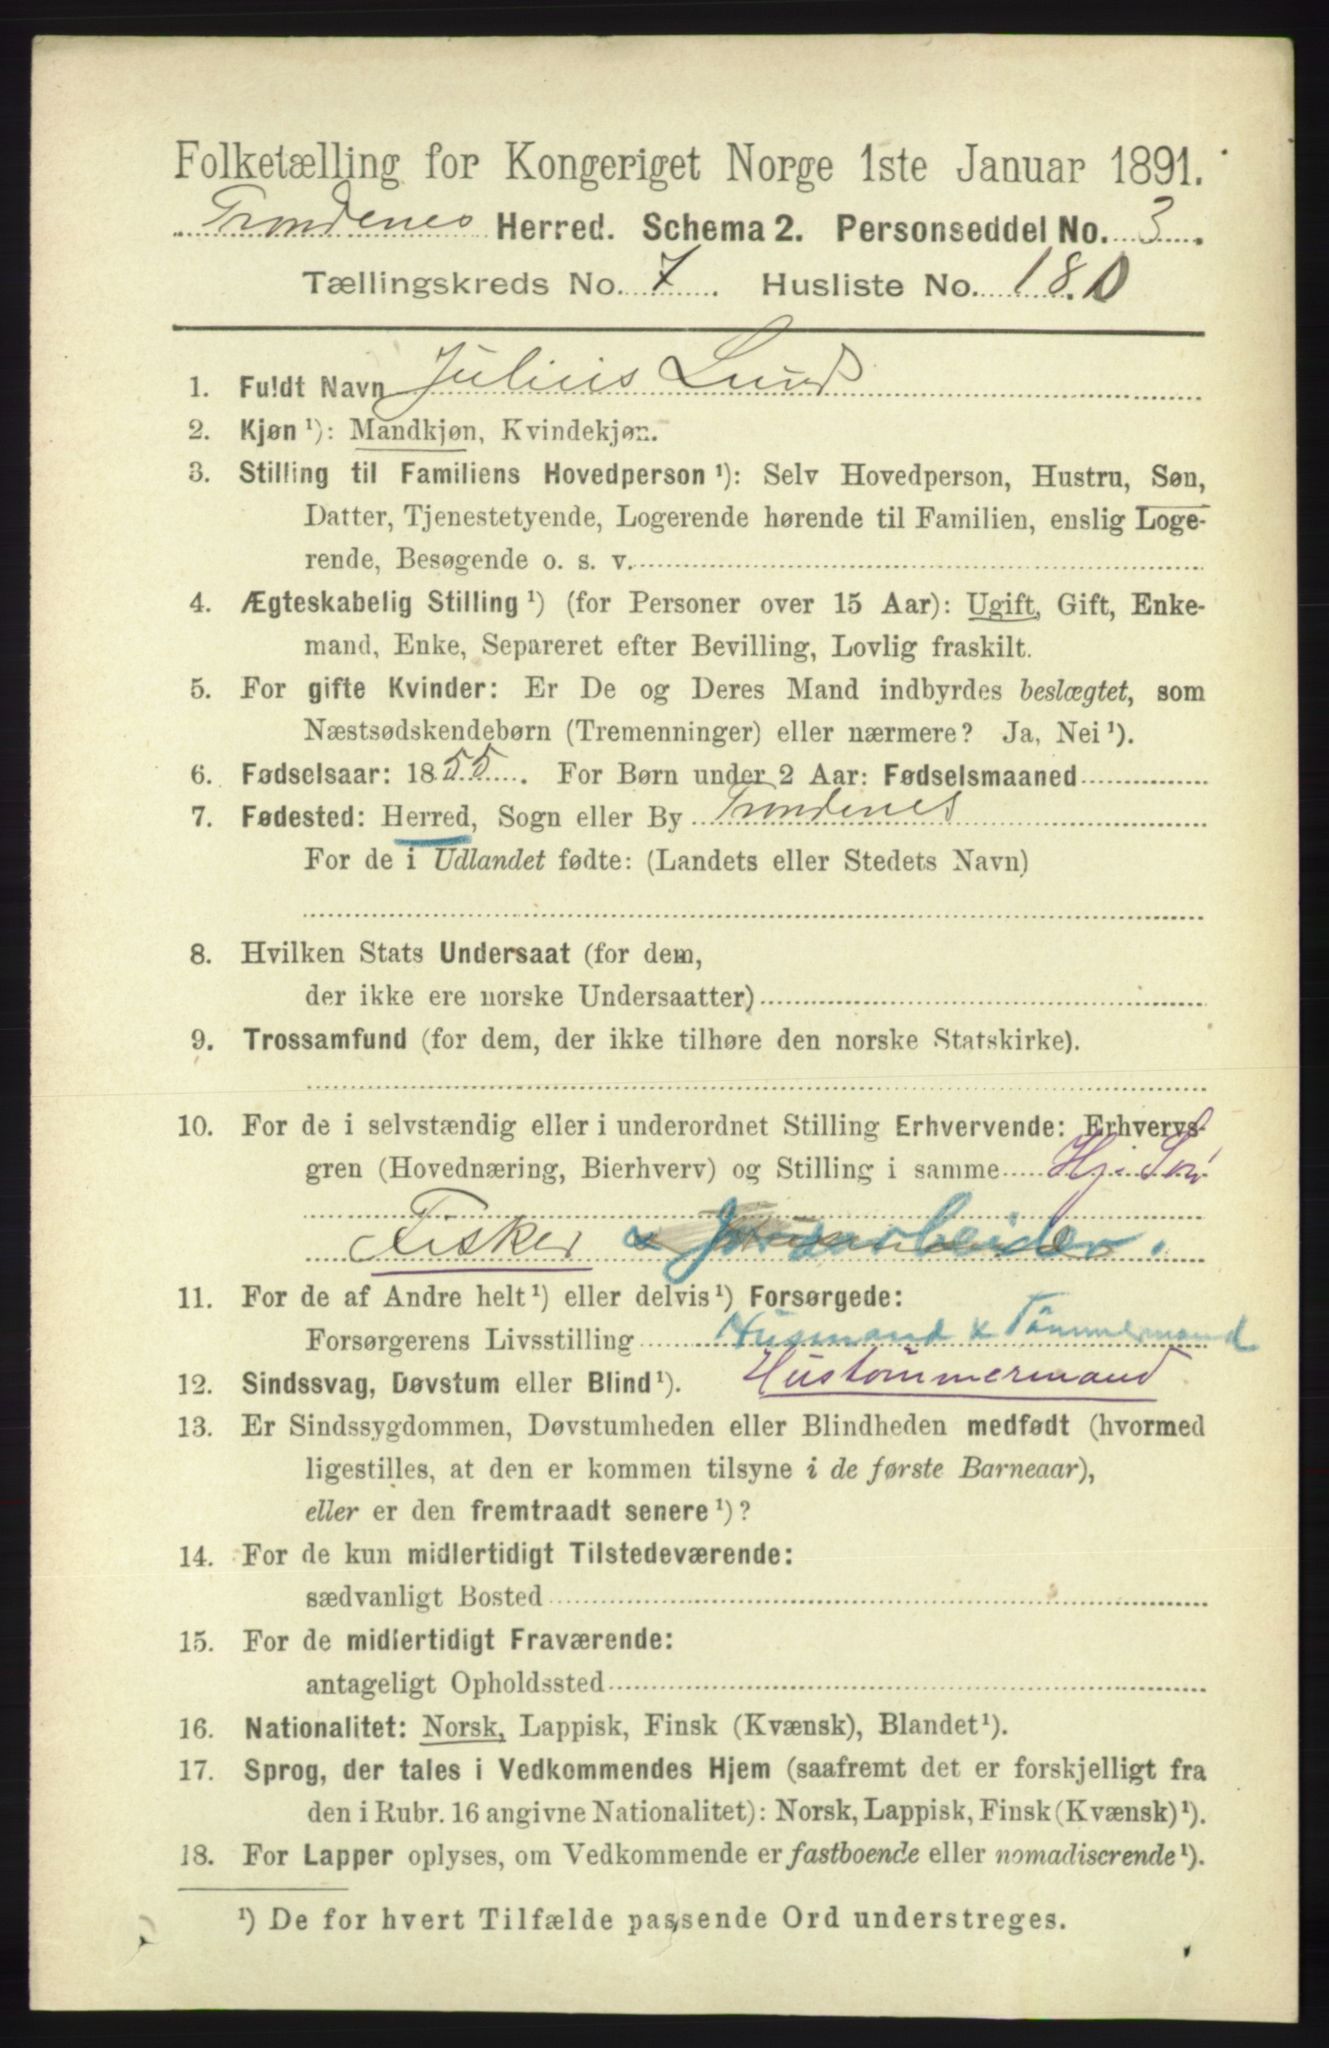 Folketælling for Kongeriget Norge 1ste Januar 1891.
Trondenes Herred. Schema 2. Personseddel No. 3.
Tællingskreds No. 7. Husliste No. 180
1. Fuldt Navn Julius Lund
2. Kjøn ¹): Mandkjøn, Kvindekjøn.
3. Stilling til Familiens Hovedperson ¹): Selv Hovedperson, Hustru, Søn,
Datter, Tjenestetyende, Logerende hørende til Familien, enslig Loge-
rende, Besøgende o. s. v.
4. Ægteskabelig Stilling ¹) (for Personer over 15 Aar): Ugift, Gift, Enke-
mand, Enke, Separeret efter Bevilling, Lovlig fraskilt.
5. For gifte Kvinder: Er De og Deres Mand indbyrdes beslægtet, som
Næstsødskendebørn (Tremenninger) eller nærmere? Ja, Nei ¹).
6. Fødselsaar: 1855. For Børn under 2 Aar: Fødselsmaaned
7. Fødested: Herred, Sogn eller By Trondenes
For de i Udlandet fødte: (Landets eller Stedets Navn)
8. Hvilken Stats Undersaat (for dem,
der ikke ere norske Undersaatter)
9. Trossamfund (for dem, der ikke tilhøre den norske Statskirke).
10. For de i selvstændig eller i underordnet Stilling Erhvervende: Erhvervs-
gren (Hovednæring, Bierhverv) og Stilling i samme Hj.
Fisker x Jordarbeider.
11. For de af Andre helt ¹) eller delvis ¹) Forsørgede:
Forsørgerens Livsstilling Husmand x Tømmermand
12. Sindssvag, Døvstum eller Blind ¹). Hustømmermand
13. Er Sindssygdommen, Døvstumheden eller Blindheden medfødt (hvormed
ligestilles, at den er kommen tilsyne i de første Barneaar),
eller er den fremtraadt senere ¹)?
14. For de kun midlertidigt Tilstedeværende:
sædvanligt Bosted
15. For de midlertidigt Fraværende:
antageligt Opholdssted
16. Nationalitet: Norsk, Lappisk, Finsk (Kvænsk), Blandet ¹).
17. Sprog, der tales i Vedkommendes Hjem (saafremt det er forskjelligt fra
den i Rubr. 16 angivne Nationalitet): Norsk, Lappisk, Finsk (Kvænsk) ¹).
18. For Lapper oplyses, om Vedkommende er fastboende eller nomadiserende ¹).
¹) De for hvert Tilfælde passende Ord understreges.